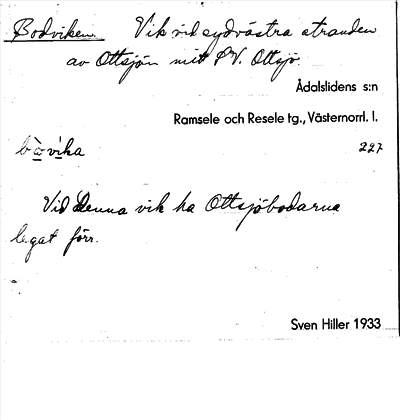 Bodviken. Vik vid sydvästra stranden
av Ottsjön mitt f V. Ottsjö.
Ådalslidens s:n
Ramsele och Resele tg., Västernorrl. l.
bòvika 227
Vid denna vik ha Ottsjöbodarna
legat förr.
Sven Hiller 1933